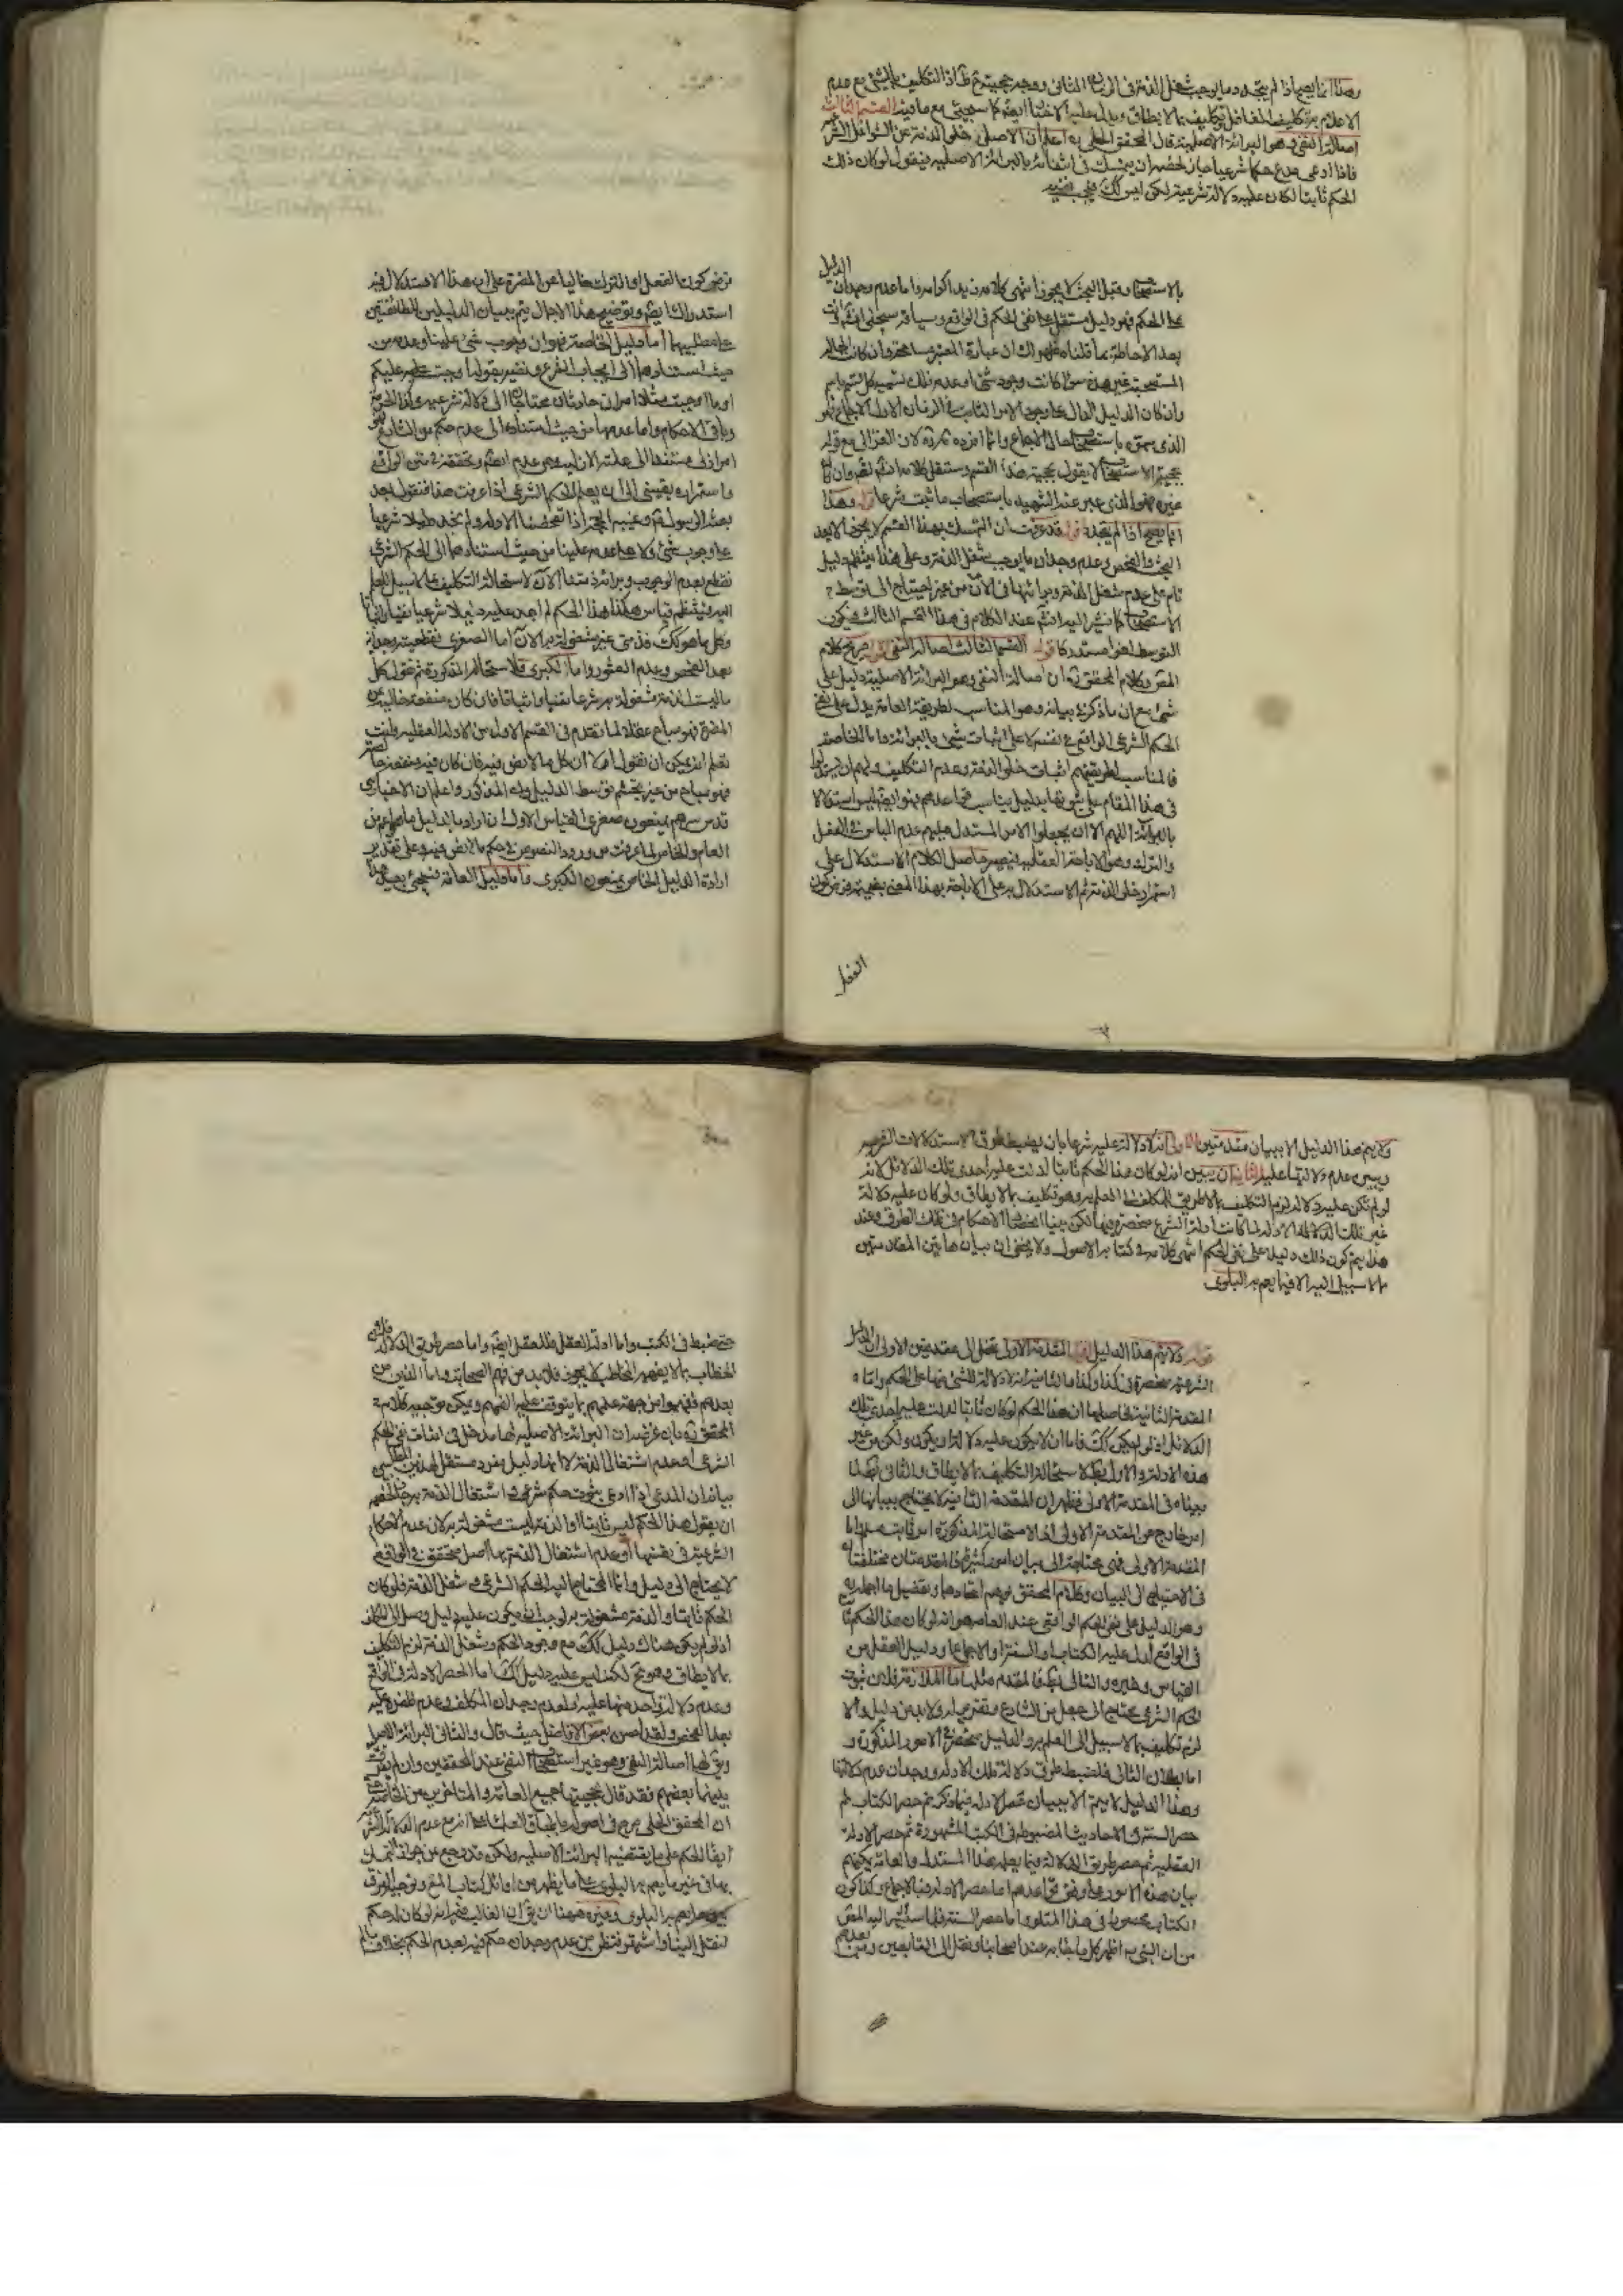 وهذا انما يصح اذا لم يتجدد ما يوجب شغل الذمة في الزمان الثاني ووجه حجيته ظ اذ التكليف بالشئ مع عدم
الاعلام به تكليف الغافل وتكليف بما لا يطاق ويدل عليه الاخبار ايضا كما سيجئ مع ما فيه القسم الثالث
اصالة النفي وهو البرائة الاصلية قال المحقق الحلي ره اعلم ان الاصل خلو الذمة عن الشواغل الشرعية
فاذا ادعى مدع حكما شرعيا جاز لخصمه ان يتمسك في انتفائه بالبرائة الاصلية فيقول لو كان ذلك
الحكم ثابتا لكان عليه دلالة شرعية لكن ليس كك فيجب نفيه
الدليل
بالاستصحاب وقبل البحث لا يجوز انتهى كلامه زيد اكرامه واما عدم وجدان
على الحكم فهو دليل مستقل على نفي الحكم في الواقع
بعد الاحاطة بما قلناه ظهر لك ان عبارة المعتبر
المستصحبة غير هذه سواء كانت وجود شئ او عدمه
وان كان الدليل الدال على وجود الامر الثابت في الزمان الاول الاجماع فهو
الذي يسمى باستصحاب حال الاجماع وانما افرده بالذكر لان الغزالي مع قوله
بحجية الاستصحاب لا يقول بحجية هذا القسم
غيره فهو الذي عبر عنه الشهيد باستصحاب ما ثبت شرعا قوله وهذا
انما يصح اذا لم يتجدد قد عرفت ان التمسك بهذا القسم لا يجوز الا بعد
البحث والفحص وعدم وجدان ما يوجب شغل الذمة وعلى هذا ينتظم دليل
تام على عدم شغل الذمة وبرائتها في الآن من غير احتياج الى توسط
الاستصحاب كما نشير اليه انشاء عند الكلام في هذا القسم الثالث فيكون
التوسط لغوا مستدركا قوله القسم الثالث اصالة النفي صريح كلام
المص وكلام المحقق ره ان اصالة النفي وهو البرائة الاصلية دليل على
شئ مع ان ما ذكره في بيانه وهو المناسب لطريقة العامة يدل على نفي
الحكم الشرعي الواقعي في نفسه لا على اثبات شئ بالبرائة واما الخاصة
فالمناسب لطريقتهم اثبات خلو الذمة وعدم التكليف
في هذا المقام على ثبوتها بدليل يناسب قواعدهم فهو ايضا ليس استدلالا
بالبرائة اللهم الا ان يجعلوا الامر المستدل عليهم عدم الباس في الفعل
والترك وهو الاباحة العقلية فيصير حاصل الكلام الاستدلال على
استمرار خلو الذمة ثم الاستدلال به على الاباحة بهذا المعنى
الفعل
فرض كون الفعل او الترك خاليا عن المضرة على ان هذا الاستدلال فيه
استدراك ايضا وتوضيح هذا الاجمال يتم ببيان الدليلين للطائفتين
على مطلبيهما اما دليل الخاصة فهو ان وجوب شئ علينا وعدمه من
حيث استنادهما الى ايجاب الشرع
او ما اوجبت مثلا امران حادثان محتاجان الى دلالة شرعية وكذا الحرمة
وباقي الاحكام واما عدمها من حيث استناده الى عدم حكم من الشارع فهو
امر ازلي مستند الى علته الازلية
واستمراره يقيني الى ان يعلم الحكم الشرعي اذا عرفت هذا فنقول بعد
بعثة الرسول ص وغيبة الحجة ع اذا تفحصنا الادلة ولم نجد دليلا شرعيا
على وجوب شئ ولا على عدمه علينا من حيث استنادهما الى الحكم الشرعي
نقطع بعدم الوجوب وبرائة ذمتنا الآن لاستحالة التكليف بما لا سبيل للعلم
اليه فينتظم قياس هكذا هذا الحكم لم اجد عليه دليلا شرعيا
وكل ما هو كك فذمتي غير مشغولة به الآن اما الصغرى فقطعية وجدانية
بعد الفحص وعدم العثور واما الكبرى فلاستحالة المذكورة ثم نقول كل
ما ليست الذمة مشغولة به شرعا نفيا واثباتا فان كان منفعة خالية عن
المضرة فهو مباح عقلا لما تقدم في القسم الاول من الادلة العقلية
تعلم انه يمكن ان نقول اولا ان كل ما لا نص فيه فان كان فيه منفعة
فهو مباح من غير تجشم توسط الدليل المذكور واعلم ان الاخباري
قدس سرهم يمنعون صغرى القياس الاول ان اراد بالدليل ما هو اعم من
العام والخاص لما عرفت من ورود النصوص في حكم ما لا نص فيه وعلى تقدير
ارادة الدليل الخاص يمنعون الكبرى واما دليل العامة فيجئ بعيد هذا
ولا يتم هذا الدليل الا ببيان مقدمتين الاولى انه لا دلالة عليه شرعا بان يضبط طرق الاستدلالات الشرعية
ويبين عدم دلالتها عليه الثانية ان يبين انه لو كان هذا الحكم ثابتا لدلت عليه احدى تلك الدلائل لانه
لو لم تكن عليه دلالة لزم التكليف بما لا طريق للمكلف الى العلم به وهو تكليف بما لا يطاق ولو كان عليه دلالة
غير تلك الادلة لما كانت ادلة الشرع منحصرة فيها لكن بينا انحصار الاحكام في تلك الطرق وعند
هذا يتم كون ذلك دليلا على نفي الحكم انتهى كلامه في كتاب الاصول ولا يخفى ان بيان هاتين المقدمتين
مما لا سبيل اليه الا فيما يعم به البلوى
قوله ولا يتم هذا الدليل المقدمة الاولى تنحل الى مقدمتين الاولى ان الدلائل
الشرعية منحصرة في كذا وكذا والثانية انه لا دلالة لشئ منها على الحكم واما
المقدمة الثانية فحاصلها ان هذا الحكم لو كان ثابتا لدلت عليه احدى تلك
الدلائل اذ لو لم يكن كك فاما ان لا يكون عليه دلالة او ان يكون ولكن من غير
هذه الادلة والاول بط لاستحالة التكليف بما لا يطاق والثاني كك لما
بيناه في المقدمة الاولى فظهر ان المقدمة الثانية لا يحتاج ببيانها الى
امر خارج عن المقدمة الاولى اذ الاستحالة المذكورة امر ثابت مبرهن واما
المقدمة الاولى فهي محتاجة الى بيان امور كثيرة فالمقدمتان مختلفتان
في الاحتياج الى البيان وكلام المحقق يوهم اتحادهما وتفصيل ما اجمله
وهو الدليل على نفي الحكم الواقعي عند العامة هو انه لو كان هذا الحكم ثابتا
في الواقع لدل عليه الكتاب او السنة او الاجماع او دليل العقل من
القياس وغيره والتالي بط فالمقدم مثله اما الملازمة فلان ثبوت
الحكم الشرعي محتاج الى جعل من الشارع وتقرير له ولا بد من دليل والا
لزم تكليف بما لا سبيل الى العلم به والدليل منحصر في الامور المذكورة و
اما بطلان الثاني فلضبط طرق دلالة تلك الادلة ووجدان عدم دلالتها
وهذا الدليل لا يتم الا ببيان حصر الادلة فيما ذكر ثم حصر الكتاب ثم
حصر السنة في الاحاديث المضبوطة في الكتب المشهورة ثم حصر الادلة
العقلية ثم حصر طريق الدلالة فيما يعلمه هذا المستدل والعامة يمكنهم
بيان هذه الامور على وفق قواعدهم اما حصر الادلة فبالاجماع وكذا كون
الكتاب محصورا في هذا المتلو واما حصر السنة فلما سيشير اليه المص
من ان النبي ص اظهر كل ما جاء به عند اصحابه ونقل الى التابعين ومن بعدهم
حتى ضبط في الكتب واما ادلة العقل فللعقل ايضا واما حصر طريق الدلالة
الخطاب بما لا يفهمه المخاطب لا يجوز فلا بد من فهم الصحابة واما الذين من
بعدهم فلهم من جهة علمهم بما يتوقف عليه الفهم ويمكن توجيه كلام
المحقق ره بان غرضه ان البرائة الاصلية لها مدخل في اثبات نفي الحكم
الشرعي او عدم اشتغال الذمة لا انها دليل مفرد مستقل لهذين المطلبين
بيانه ان المدعي اذا ادعى ثبوت حكم شرعي واشتغال الذمة به جاز لخصمه
ان يقول هذا الحكم ليس ثابتا او الذمة ليست مشغولة به لان عدم الاحكام
الشرعية في نفسها او عدم اشتغال الذمة بها اصل محقق في الواقع
لا يحتاج الى دليل وانما المحتاج اليه الحكم الشرعي وشغل الذمة فلو كان
الحكم ثابتا والذمة مشغولة به لوجب ان يكون عليه دليل وصل الى المكلف
اذ لو لم يكن هناك دليل كك مع وجود الحكم وشغل الذمة لزم التكليف
بما لا يطاق وهو مح لكنه ليس عليه دليل كك اما لحصر الادلة في الواقع
وعدم دلالة واحد منها عليه او لعدم وجدان المكلف وعدم ظفره عليه
بعد الفحص ولقد احسن بعض الافاضل حيث قال والثاني البرائة الاصلية
ويق لها اصالة النفي وهو غير استصحاب النفي عند المحققين وان لم يفرق
بينهما بعضهم فقد قال بحجيتها جميع العامة والمتاخرين من الخاصة
ان المحقق الحلي صرح في اصوله باطباق العلماء على انه مع عدم الدلالة الشرعية
ابقاء الحكم على ما يقتضيه البرائة الاصلية ولكن قد رجع عن جواز التمسك
بها في غير ما يعم به البلوى على ما يظهر من اوائل كتاب المعتبر وتوجيه الفرق
بين ما يعم به البلوى وغيره ههنا ان يق ان الغالب فيه انه لو كان له حكم
لنقل الينا واشتهر فنظن من عدم وجدان حكم فيه لعدم الحكم بخلاف ما لم